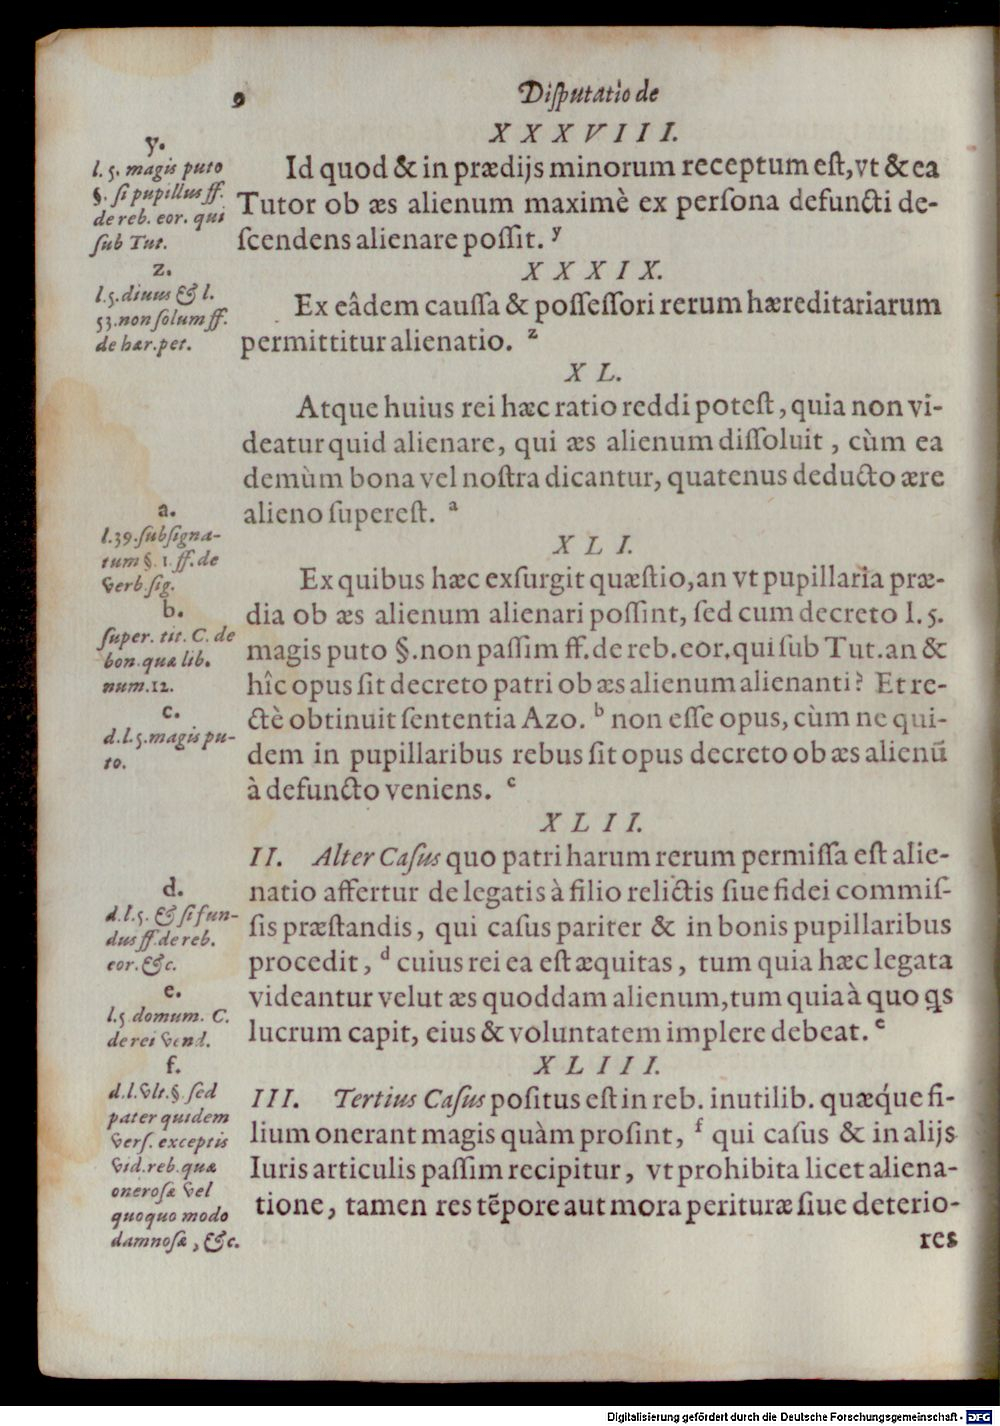 9
Diſputatio de
XXXVIII.
Id quod & in prædijs minorum receptum eſt, vt & ea
Tutor ob æs alienum maximè ex perſona defuncti de-
ſcendens alienare poſſit. y
XXXIX.
Ex eâdem cauſſa & poſſeſſori rerum hæreditariarum
permittitur alienatio. z
XL.
Atque huius rei hæc ratio reddi poteſt, quia non vi-
deatur quid alienare, qui æs alienum diſſoluit, cùm ea
demùm bona vel noſtra dicantur, quatenus deducto ære
alieno ſupereſt. a
XLI.
Ex quibus hæc exſurgit quæſtio, an vt pupillaria præ-
dia ob æs alienum alienari poſſint, ſed cum decreto l. 5.
magis puto §. non paſſim ff. de reb. eor. qui ſub Tut. an &
hîc opus ſit decreto patri ob æs alienum alienanti? Et re-
ctè obtinuit ſententia Azo. b non eſſe opus, cùm ne qui-
dem in pupillaribus rebus ſit opus decreto ob æs alienū
à defuncto veniens. c
XLII.
II. Alter Caſus quo patri harum rerum permiſſa eſt alie-
natio affertur de legatis à filio relictis ſiue fidei commiſ-
ſis præſtandis, qui caſus pariter & in bonis pupillaribus
procedit, d cuius rei ea eſt æquitas, tum quia hæc legata
videantur velut æs quoddam alienum, tum quia à quo qs
lucrum capit, eius & voluntatem implere debeat. e
XLIII.
III. Tertius Caſus poſitus eſt in reb. inutilib. quæq́ue fi-
lium onerant magis quàm proſint, f qui caſus & in alijs
Iuris articulis paſſim recipitur, vt prohibita licet aliena-
tione, tamen res tēpore aut mora perituræ ſiue deterio-
res
y.
l. 5. magis puto
§. ſi pupillus ff.
de reb. eor. qui
ſub Tut.
z.
l. 5. diuus & l.
53. non ſolum ff.
de hær. pet.
a.
l. 39. ſubſigna-
tum §. 1. ff. de
verb. ſig.
b.
ſuper. tit. C. de
bon. quæ lib.
num. 12.
c.
d. l. 5. magis pu-
to.
d.
d. l. 5. & ſi fun-
dus ff. de reb.
eor. &c.
e.
l. 5 domum. C.
de rei vend.
f.
d. l. vlt. §. ſed
pater quidem
verſ. exceptis
vid. reb. quæ
oneroſæ vel
quoquo modo
damnoſæ, &c.
Digitalisierung gefördert durch die Deutsche Forschungsgemeinschaft - DFG